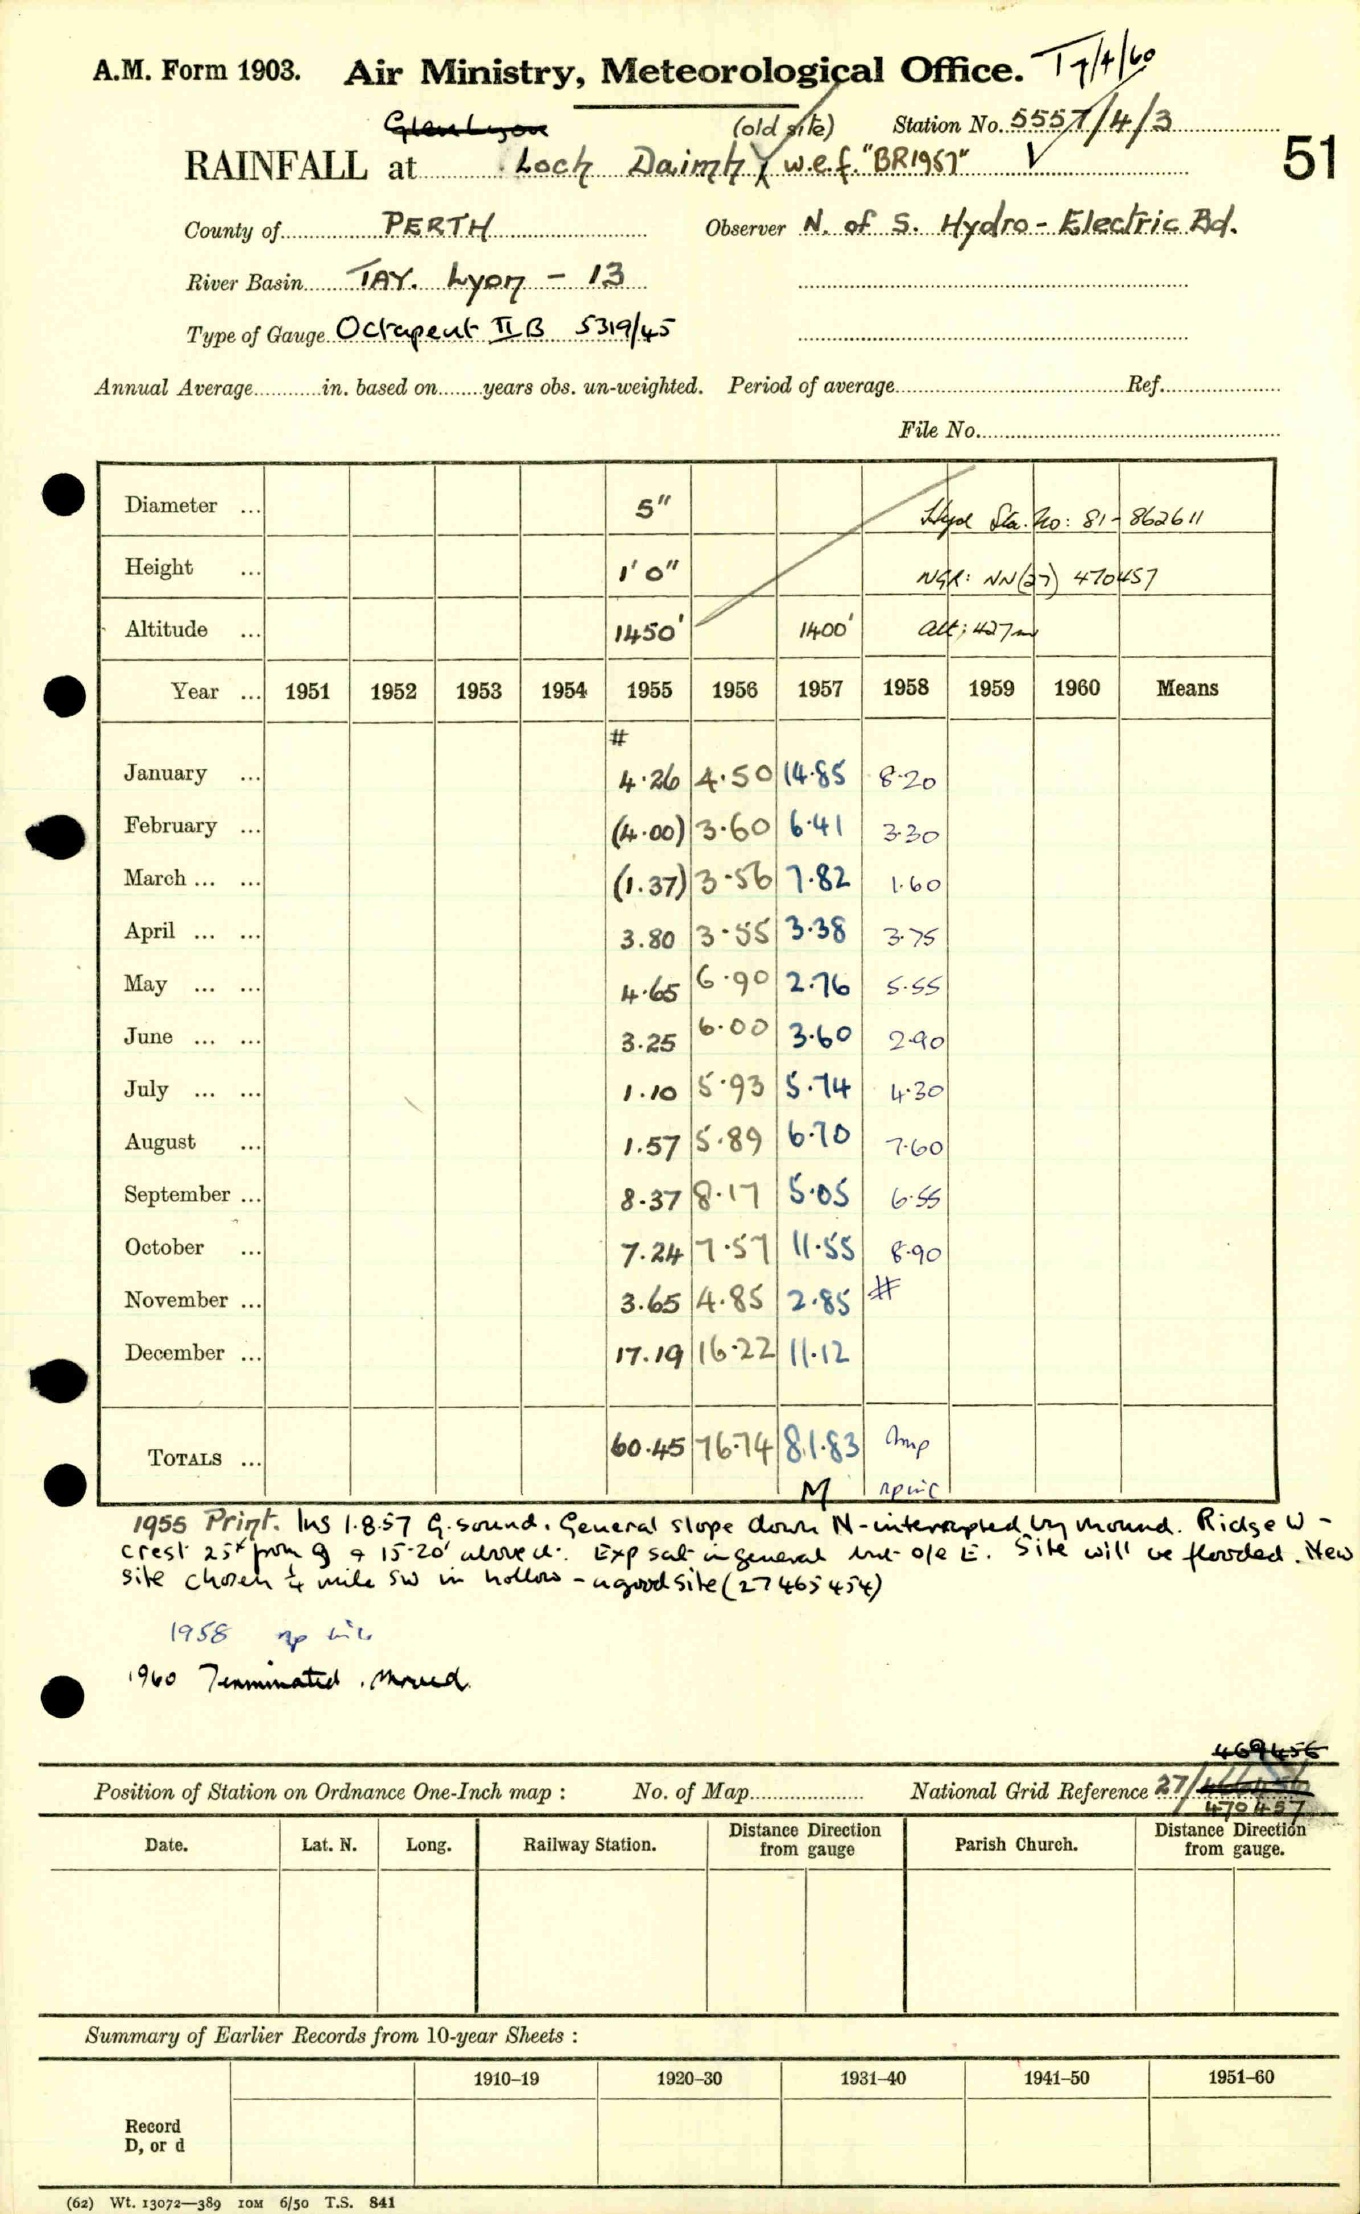 A.M. Form 1903. Air Ministry, Meteorological Office. T7/4/60
Glen Lyon (old site) Station No. 5557/4/3
RAINFALL at Loch Daimh w.e.f. "BR1957" 51
County of PERTH Observer N. of S. Hydro-Electric Bd.
River Basin TAY. Lyon - 13
Type of Gauge Octapent II B 5319/45
Annual Average in. based on years obs. un-weighted. Period of average Ref.
File No.
Diameter ... 5" Hyd Sta. No: 81-862611
Height ... 1' 0" NGR: NN(27) 470457
Altitude ... 1450' 1400' Alt: 427m
Year ... 1951 1952 1953 1954 1955 1956 1957 1958 1959 1960 Means
#
January ... 4.26 4.50 14.85 8.20
February ... (4.00) 3.60 6.41 3.30
March ... ... (1.37) 3.56 7.82 1.60
April ... ... 3.80 3.55 3.38 3.75
May ... ... 4.65 6.90 2.76 5.55
June ... ... 3.25 6.00 3.60 2.90
July ... ... 1.10 5.93 5.74 4.30
August ... 1.57 5.89 6.70 7.60
September ... 8.37 8.17 5.05 6.55
October ... 7.24 7.57 11.55 8.90
November ... 3.65 4.85 2.85 #
December ... 17.19 16.22 11.12
TOTALS ... 60.45 76.74 81.83
M
1955 Print. Ins 1.8.57 G. sound. General slope down N - interrupted by mound. Ridge W -
crest 25x from g & 15-20' above it. Exp sat in general but o/e E. Site will be flooded. New
site chosen ¼ mile SW in hollow - a good site (27 465454)
1958
1960 Terminated. Moved.
469456
Position of Station on Ordnance One-Inch map : No. of Map National Grid Reference 27/
470457
Date. Lat. N. Long. Railway Station. Distance Direction from gauge Parish Church. Distance Direction from gauge.
Summary of Earlier Records from 10-year Sheets :
1910–19 1920–30 1931–40 1941–50 1951–60
Record
D, or d
(62) Wt. 13072—389 10M 6/50 T.S. 841